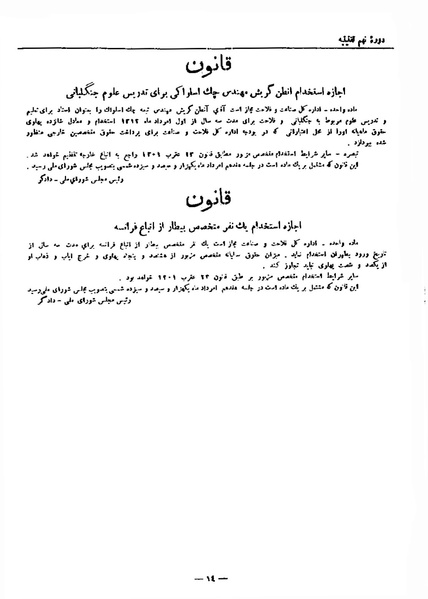 دورهٔ نهم تقنینیه
قانون
اجازه استخدام انطن گریش مهندس چك اسلواکی برای تدریس علوم جنگلبانی
ماده واحده - اداره کل صناعت و فلاحت مجاز است آقای آنطن گریش مهندس تبعه چك اسلواك را بعنوان استاد برای تعلیم
و تدریس علوم مربوط به جنگلبانی و فلاحت برای مدت سه سال از اول امرداد ماه ۱۳۱۲ استخدام و معادل شانزده پهلوی
حقوق ماهیانه اورا از محل اعتباراتی که در بودجه اداره کل فلاحت و صناعت برای پرداخت حقوق متخصصین خارجی منظور
شده بپردازد .
تبصره - سایر شرایط استخدام متخصص مزبور مطابق قانون ۲۳ عقرب ۱۳۰۱ راجع به اتباع خارجه تنظیم خواهد شد .
این قانون که مشتمل بر یك ماده است در جلسه هفدهم امرداد ماه یکهزار و سیصد و سیزده شمسی بتصویب مجلس شورای ملی رسید .
رئیس مجلس شورای ملی - دادگر
قانون
اجازه استخدام یك نفر متخصص بیطار از اتباع فرانسه
ماده واحده - اداره کل فلاحت و صناعت مجاز است یك نفر متخصص بیطار از اتباع فرانسه برای مدت سه سال از
تاریخ ورود بطهران استخدام نماید . میزان حقوق سالیانه متخصص مزبور از هشتصد و پنجاه پهلوی و خرج ایاب و ذهاب او
از یکصد و شصت پهلوی نباید تجاوز کند .
سایر شرایط استخدام متخصص مزبور بر طبق قانون ۲۳ عقرب ۱۳۰۱ خواهد بود .
این قانون که مشتمل بر یك ماده است در جلسه هفدهم امرداد ماه یکهزار و سیصد و سیزده شمسی بتصویب مجلس شورای ملی رسید
رئیس مجلس شورای ملی - دادگر
— ۱٤ —